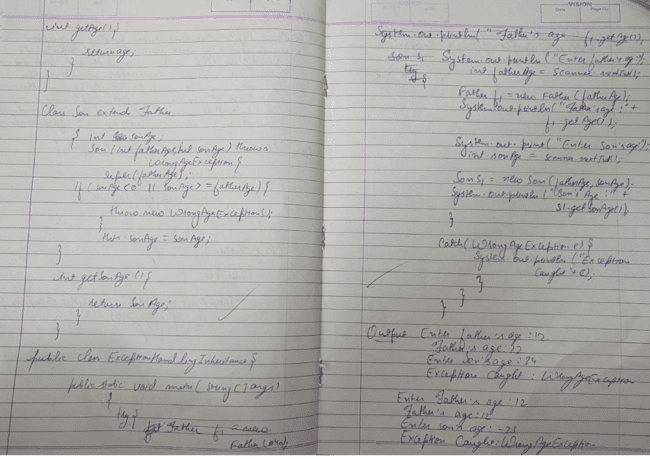 int getAge(){
return age;
}
}
Class Son extends Father
{ int sonAge;
Son (int fatherAge, int sonAge) throws
WrongAgeException{
super(fatherAge);
if (sonAge<0 || sonAge>=fatherAge){
throw new WrongAgeException();
}
this.sonAge = sonAge;
}
int getSonAge(){
return SonAge;
}
}
public class ExceptionHandlingInheritance{
public static void main(String[] args)
{
try{
Father f1 = new
VISION
System.out.println("Father's age f1.getAge());
Son s1
try {
System.out.println("Enter father's age");
int fatherAge = Scanner.nextInt();
Father f1 = new Father(fatherAge);
System.out.println("Father's age:" +
f1.getAge());
System.out.print("Enter Son's age");
int sonAge = scanner.nextInt();
Son S1 = new Son(fatherAge, sonAge);
System.out.println("Son's Age:" +
S1.getSonAge());
}
Catch(WrongAgeException e){
System.out.println("Exception
Caught"+e);
}
}
}
Output Enter father's age: 12
Father's age: 12
Enter son's age: 24
Exception Caught: WrongAgeException
Enter Father's age: 12
Father's age: 12
Enter son's age:
Exception Caught: WrongAgeException